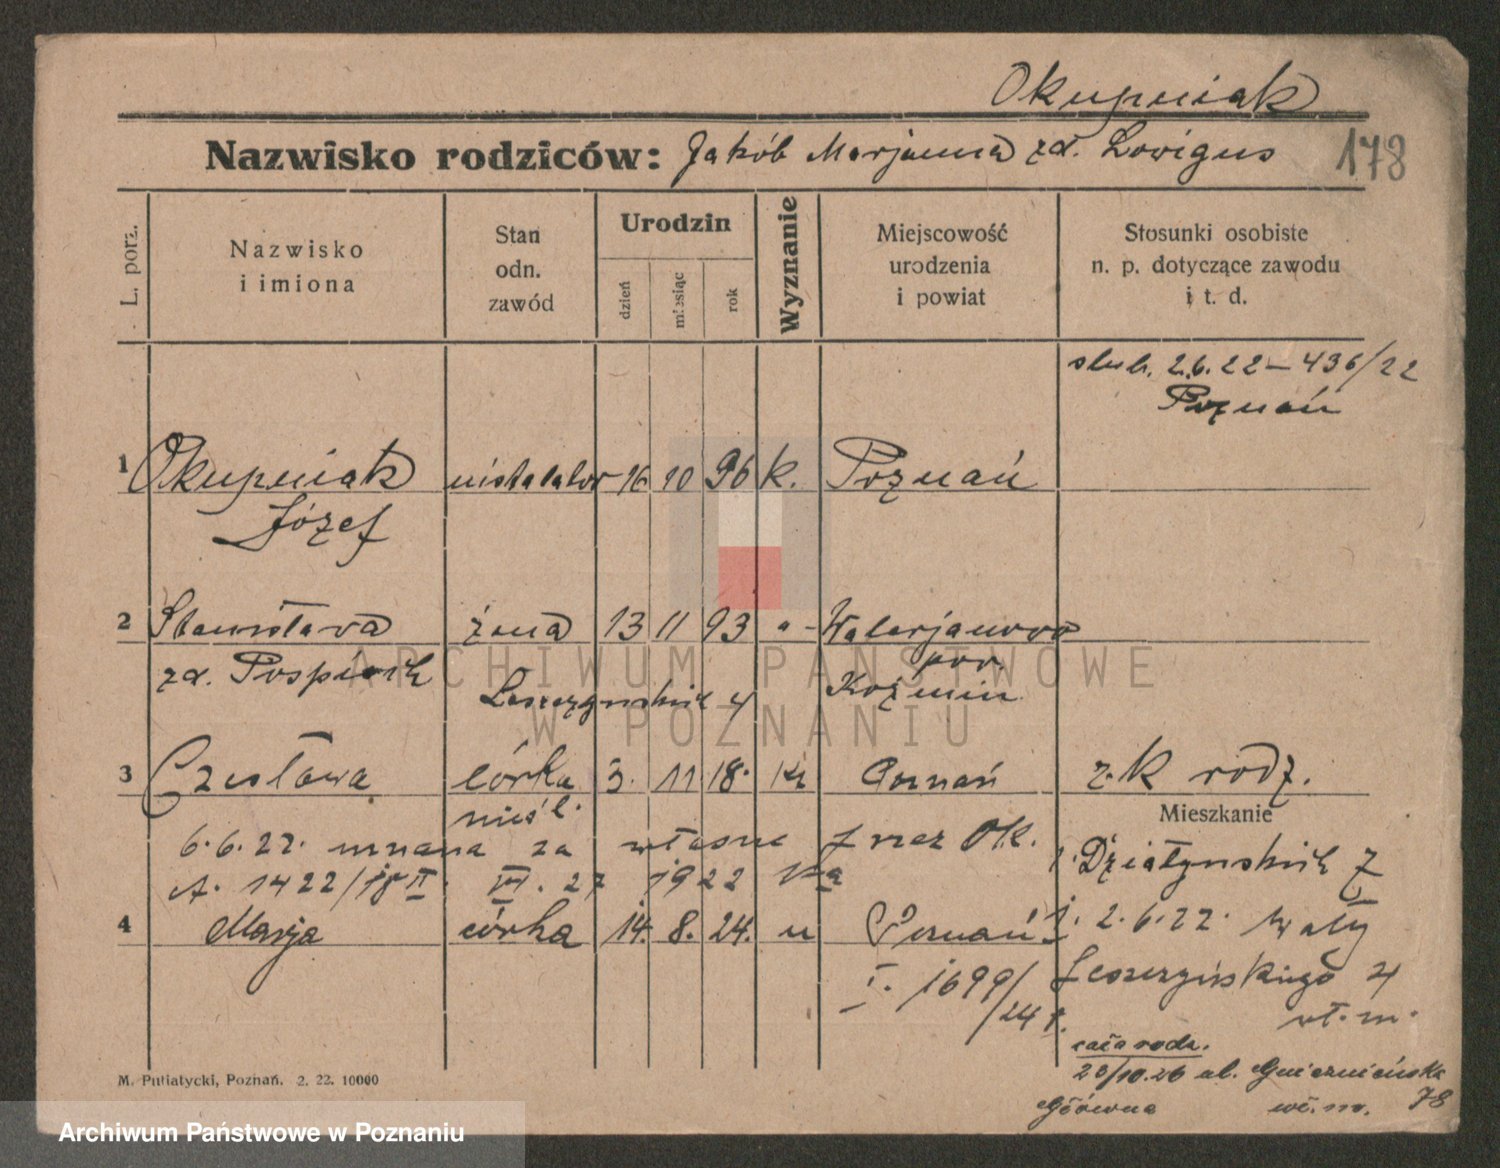 Okupniak
Nazwisko rodziców: Jakób Marjanna zd. Lowigus
178
L. porz.
Nazwisko i imiona
Stan odn. zawód
Urodzin
dzień
miesiąc
rok
Wyznanie
Miejscowość urodzenia i powiat
Stosunki osobiste n. p. dotyczące zawodu i t. d.
slub. 2.6.22 – 436/22
Poznań
1 Okupniak instalator 16 10 96 k. Poznań
Józef
2 Stanisława żona 13 11 93 " Walerjanowo
zd. Pospiech pow.
Leszczyńskich 4 Koźmin
3 Czesława córka 3. 11 18. kt Poznań z.k rodz.
nieśl.
Mieszkanie
6.6.22. uznana za własne przez Ok.
A. 1422/18 II. VII. 27 1922
Działyńskich 7
4 Marja córka 14. 8. 24. " Poznań
j. 2.6.22. Wały
I. 1699/24
Leszczyńskiego 4
wł. m.
cała rodz.
28/10.26 ul. Gnieźnieńska 78
Główna wł. m.
M. Putiatycki, Poznań. 2. 22. 10000
ARCHIWUM PAŃSTWOWE
W POZNANIU
Archiwum Państwowe w Poznaniu